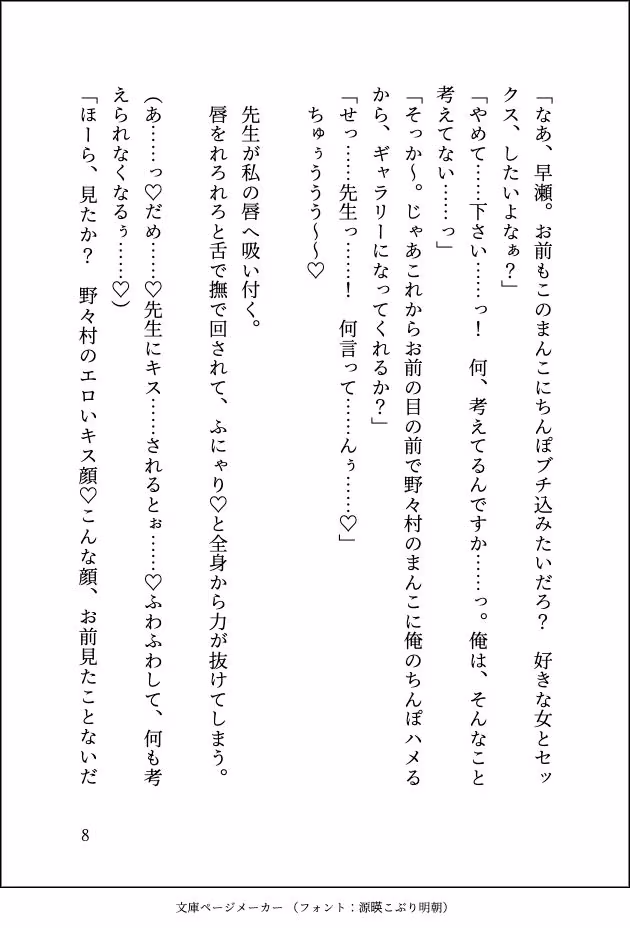 「なあ、早瀬。お前もこのまんこにちんぽブチ込みたいだろ？　好きな女とセッ
クス、したいよなぁ？」
「やめて……下さい……っ！　何、考えてるんですか……っ。俺は、そんなこと
考えてない……っ」
「そっか～。じゃあこれからお前の目の前で野々村のまんこに俺のちんぽハメる
から、ギャラリーになってくれるか？」
「せっ……先生っ……！　何言って……んぅ……♡」
ちゅぅううう～～♡
先生が私の唇へ吸い付く。
唇をれろれろと舌で撫で回されて、ふにゃり♡と全身から力が抜けてしまう。
（あ……っ♡だめ……♡先生にキス……されるとぉ……♡ふわふわして、何も考
えられなくなるぅ……♡）
「ほーら、見たか？　野々村のエロいキス顔♡こんな顔、お前見たことないだ
8
文庫ページメーカー （フォント：源暎こぶり明朝）